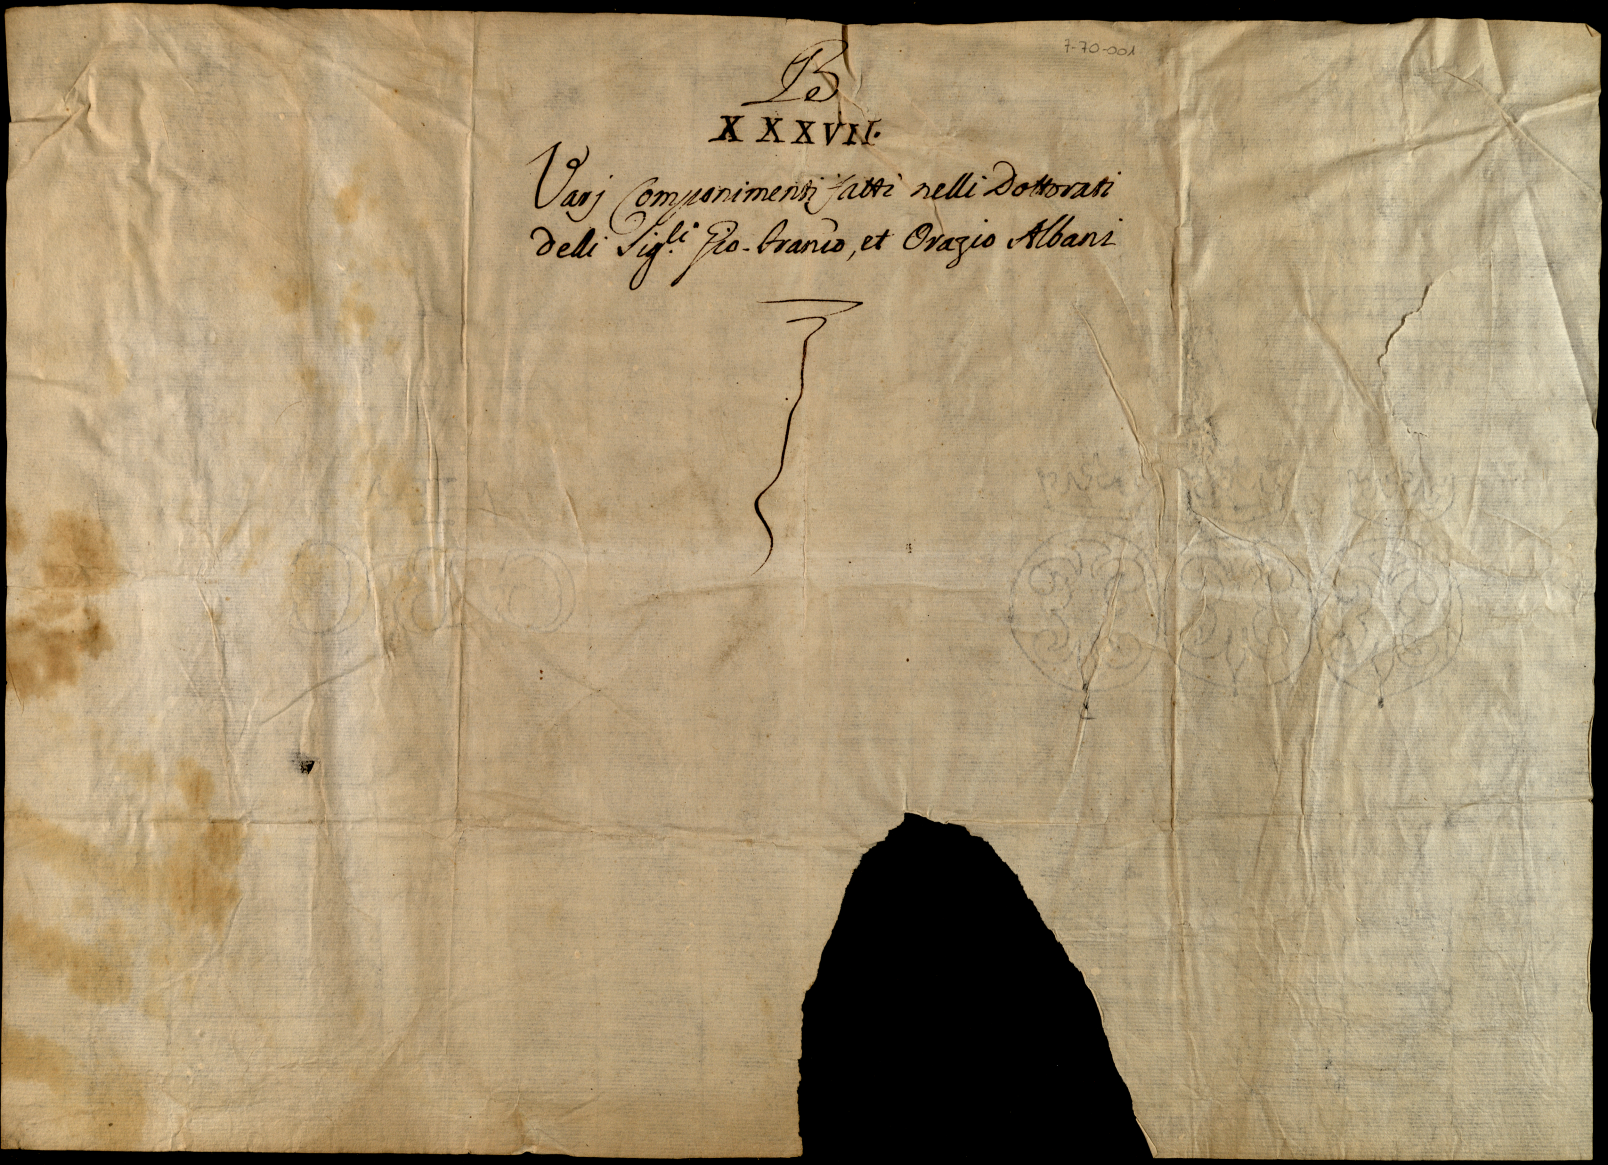 7-70-001
B
XXXVII.
Varj Componimenti fatti nelli Dottorati
delli Sig.li Gio. Franco, et Orazio Albani